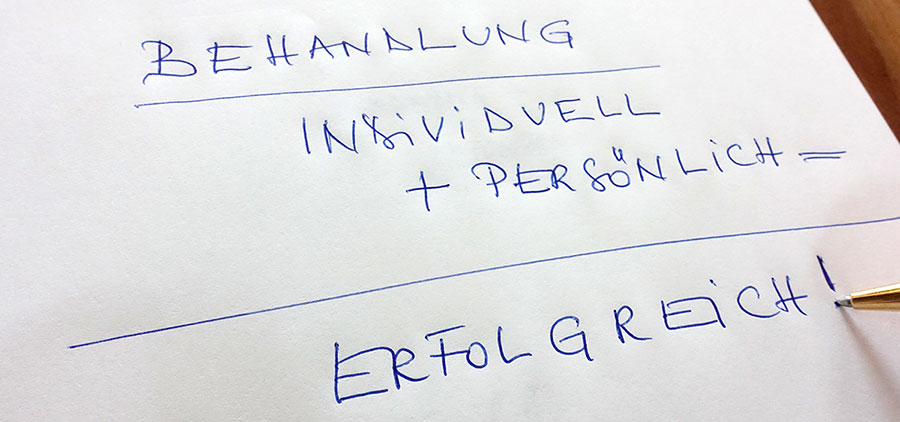 BEHANDLUNG
INDiViDUELL
+ PERSÖNLiCH =
ERFOLGREiCH!